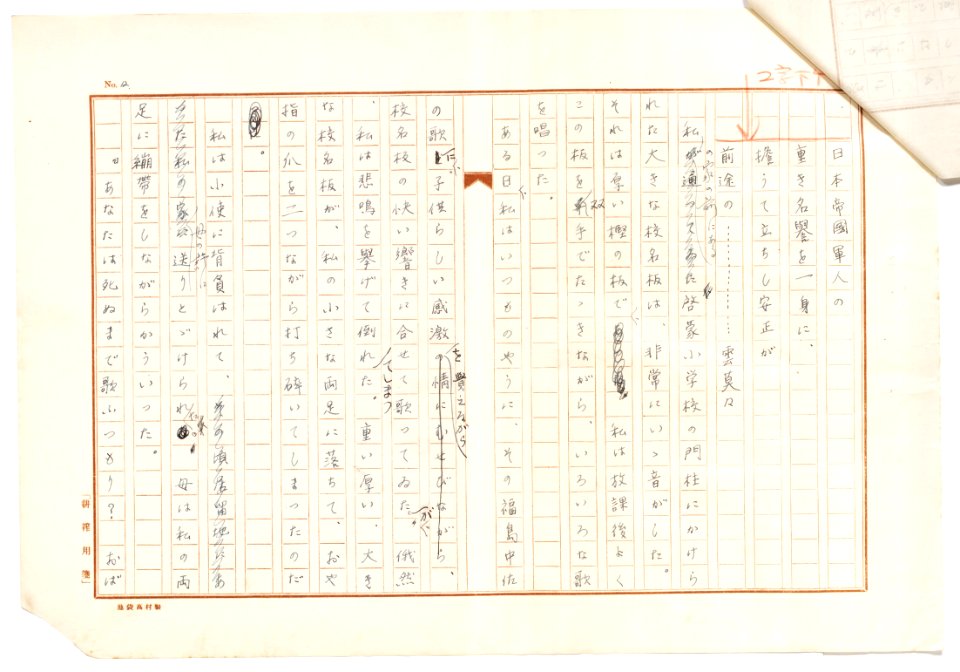 No. 12
2字下ケ
日本帝國軍人の
重き名譽を一身に、
擔うて立ちし安正が
前途の…………雲莫々
私の家の前にある啓蒙小学校の門柱にかけら
れた大きな校名板は、非常にいゝ音がした。
それは厚い樫の板で、私は放課後よく
この板を双手でたゝきながら、いろいろな歌
を唱つた。
ある日、私はいつものやうに、その福島中佐
の歌に、子供らしい感激を覺えながら、
校名板の快い響きに合せて歌つてゐたが、俄然
、私は悲鳴を擧げて倒れてしまつた。重い厚い、大き
な校名板が、私の小さな両足に落ちて、おや
指の爪を二つながら打ち碎いてしまつたのだ
。
私は小使に背負はれて、
母の許に送りとゞけられた。母は私の両
足に繃帯をしながらかういつた。
『あなたは死ぬまで歌ふつもり？　おば
「耕稼用箋」